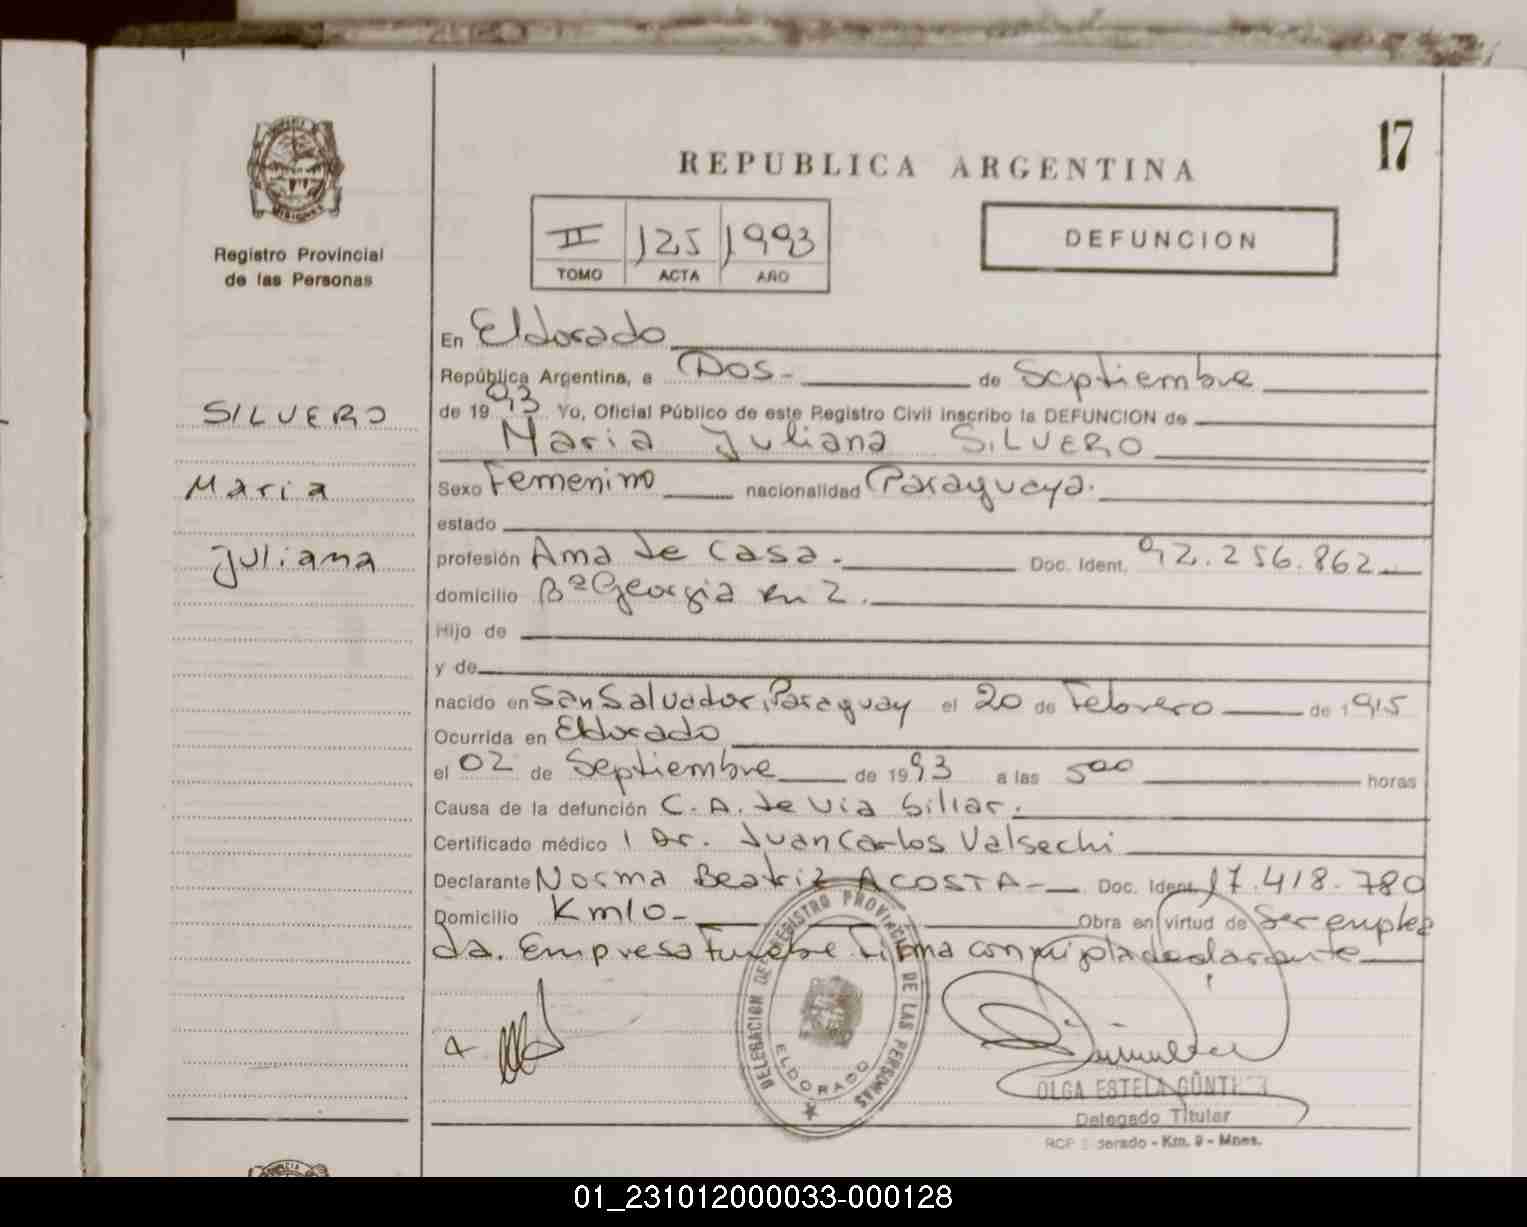 17
REPUBLICA ARGENTINA
MISIONES
Registro Provincial
de las Personas
II 125 1993
TOMO ACTA AÑO
DEFUNCION
En Eldorado
República Argentina, a Dos.- de Septiembre
de 1993 Yo, Oficial Público de este Registro Civil inscribo la DEFUNCION de
SILVERO
Maria Juliana SILVERO
Maria
Sexo Femenino nacionalidad Paraguaya.
estado
Juliana
profesión Ama de Casa.- Doc. Ident. 92.256.862
domicilio Bº Georgia km 2.
Hijo de
y de
nacido en San Salvador, Paraguay el 20 de Febrero de 1915
Ocurrida en Eldorado
el 02 de Septiembre de 1993 a las 5⁰⁰ horas
Causa de la defunción C.A. de via biliar.
Certificado médico Dr. Juan Carlos Valsechi
Declarante Norma Beatriz ACOSTA- Doc. Ident. 17.418.780
Domicilio Km10- Obra en virtud de Ser emplea
da. Empresa Funebre Firma conmigo la declarante
DELEGACION DEL REGISTRO PROVINCIAL DE LAS PERSONAS
ELDORADO
OLGA ESTELA
Delegado Titular
RCP Eldorado - Km. 9 - Mnes.
01_231012000033-000128